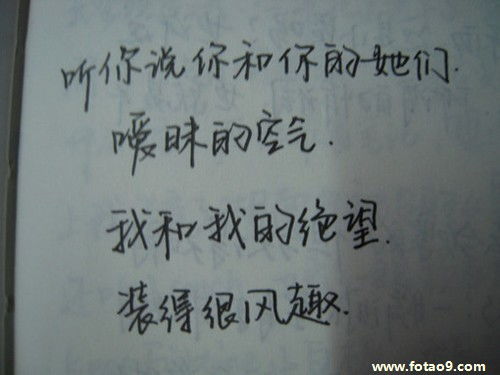 听你说你和你的她们.
暧昧的空气.
我和我的绝望.
装得很风趣.
www.fotao9.com